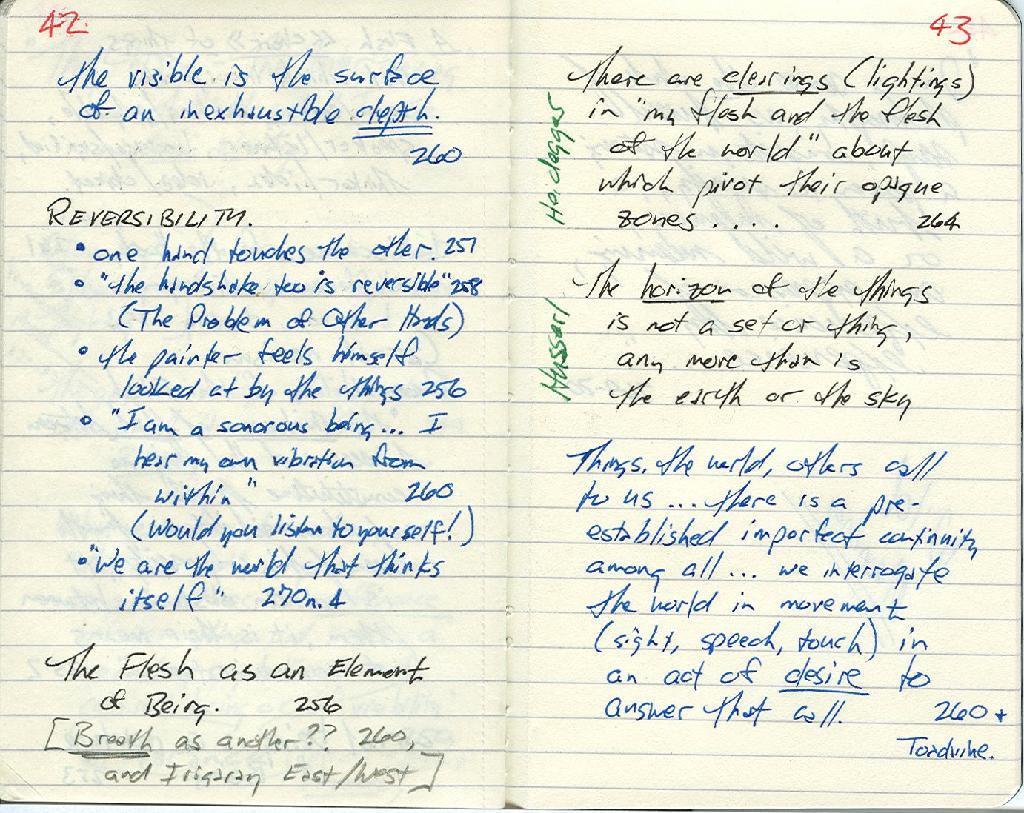 42.
the visible is the surface
of an inexhaustible depth.
260
REVERSIBILITY.
• one hand touches the other. 257
• "the handshake too is reversible" 258
(The Problem of Other Hands)
• the painter feels himself
looked at by the things 256
• "I am a sonorous being... I
hear my own vibration from
within" 260
(would you listen to yourself!)
• "We are the world that thinks
itself" 270n.4
The Flesh as an Element
of Being. 256
[Breath as another?? 260,
and Irigaray East/West]
43
Heidegger
there are clearings (lightings)
in "my flesh and the flesh
of the world" about
which pivot their opaque
zones.... 264
Husserl
The horizon of the things
is not a set or thing,
any more than is
the earth or the sky
Things, the world, others call
to us ... there is a pre-
established imperfect continuity
among all... we interrogate
the world in movement
(sight, speech, touch) in
an act of desire to
answer that call. 260 +
Toadvine.